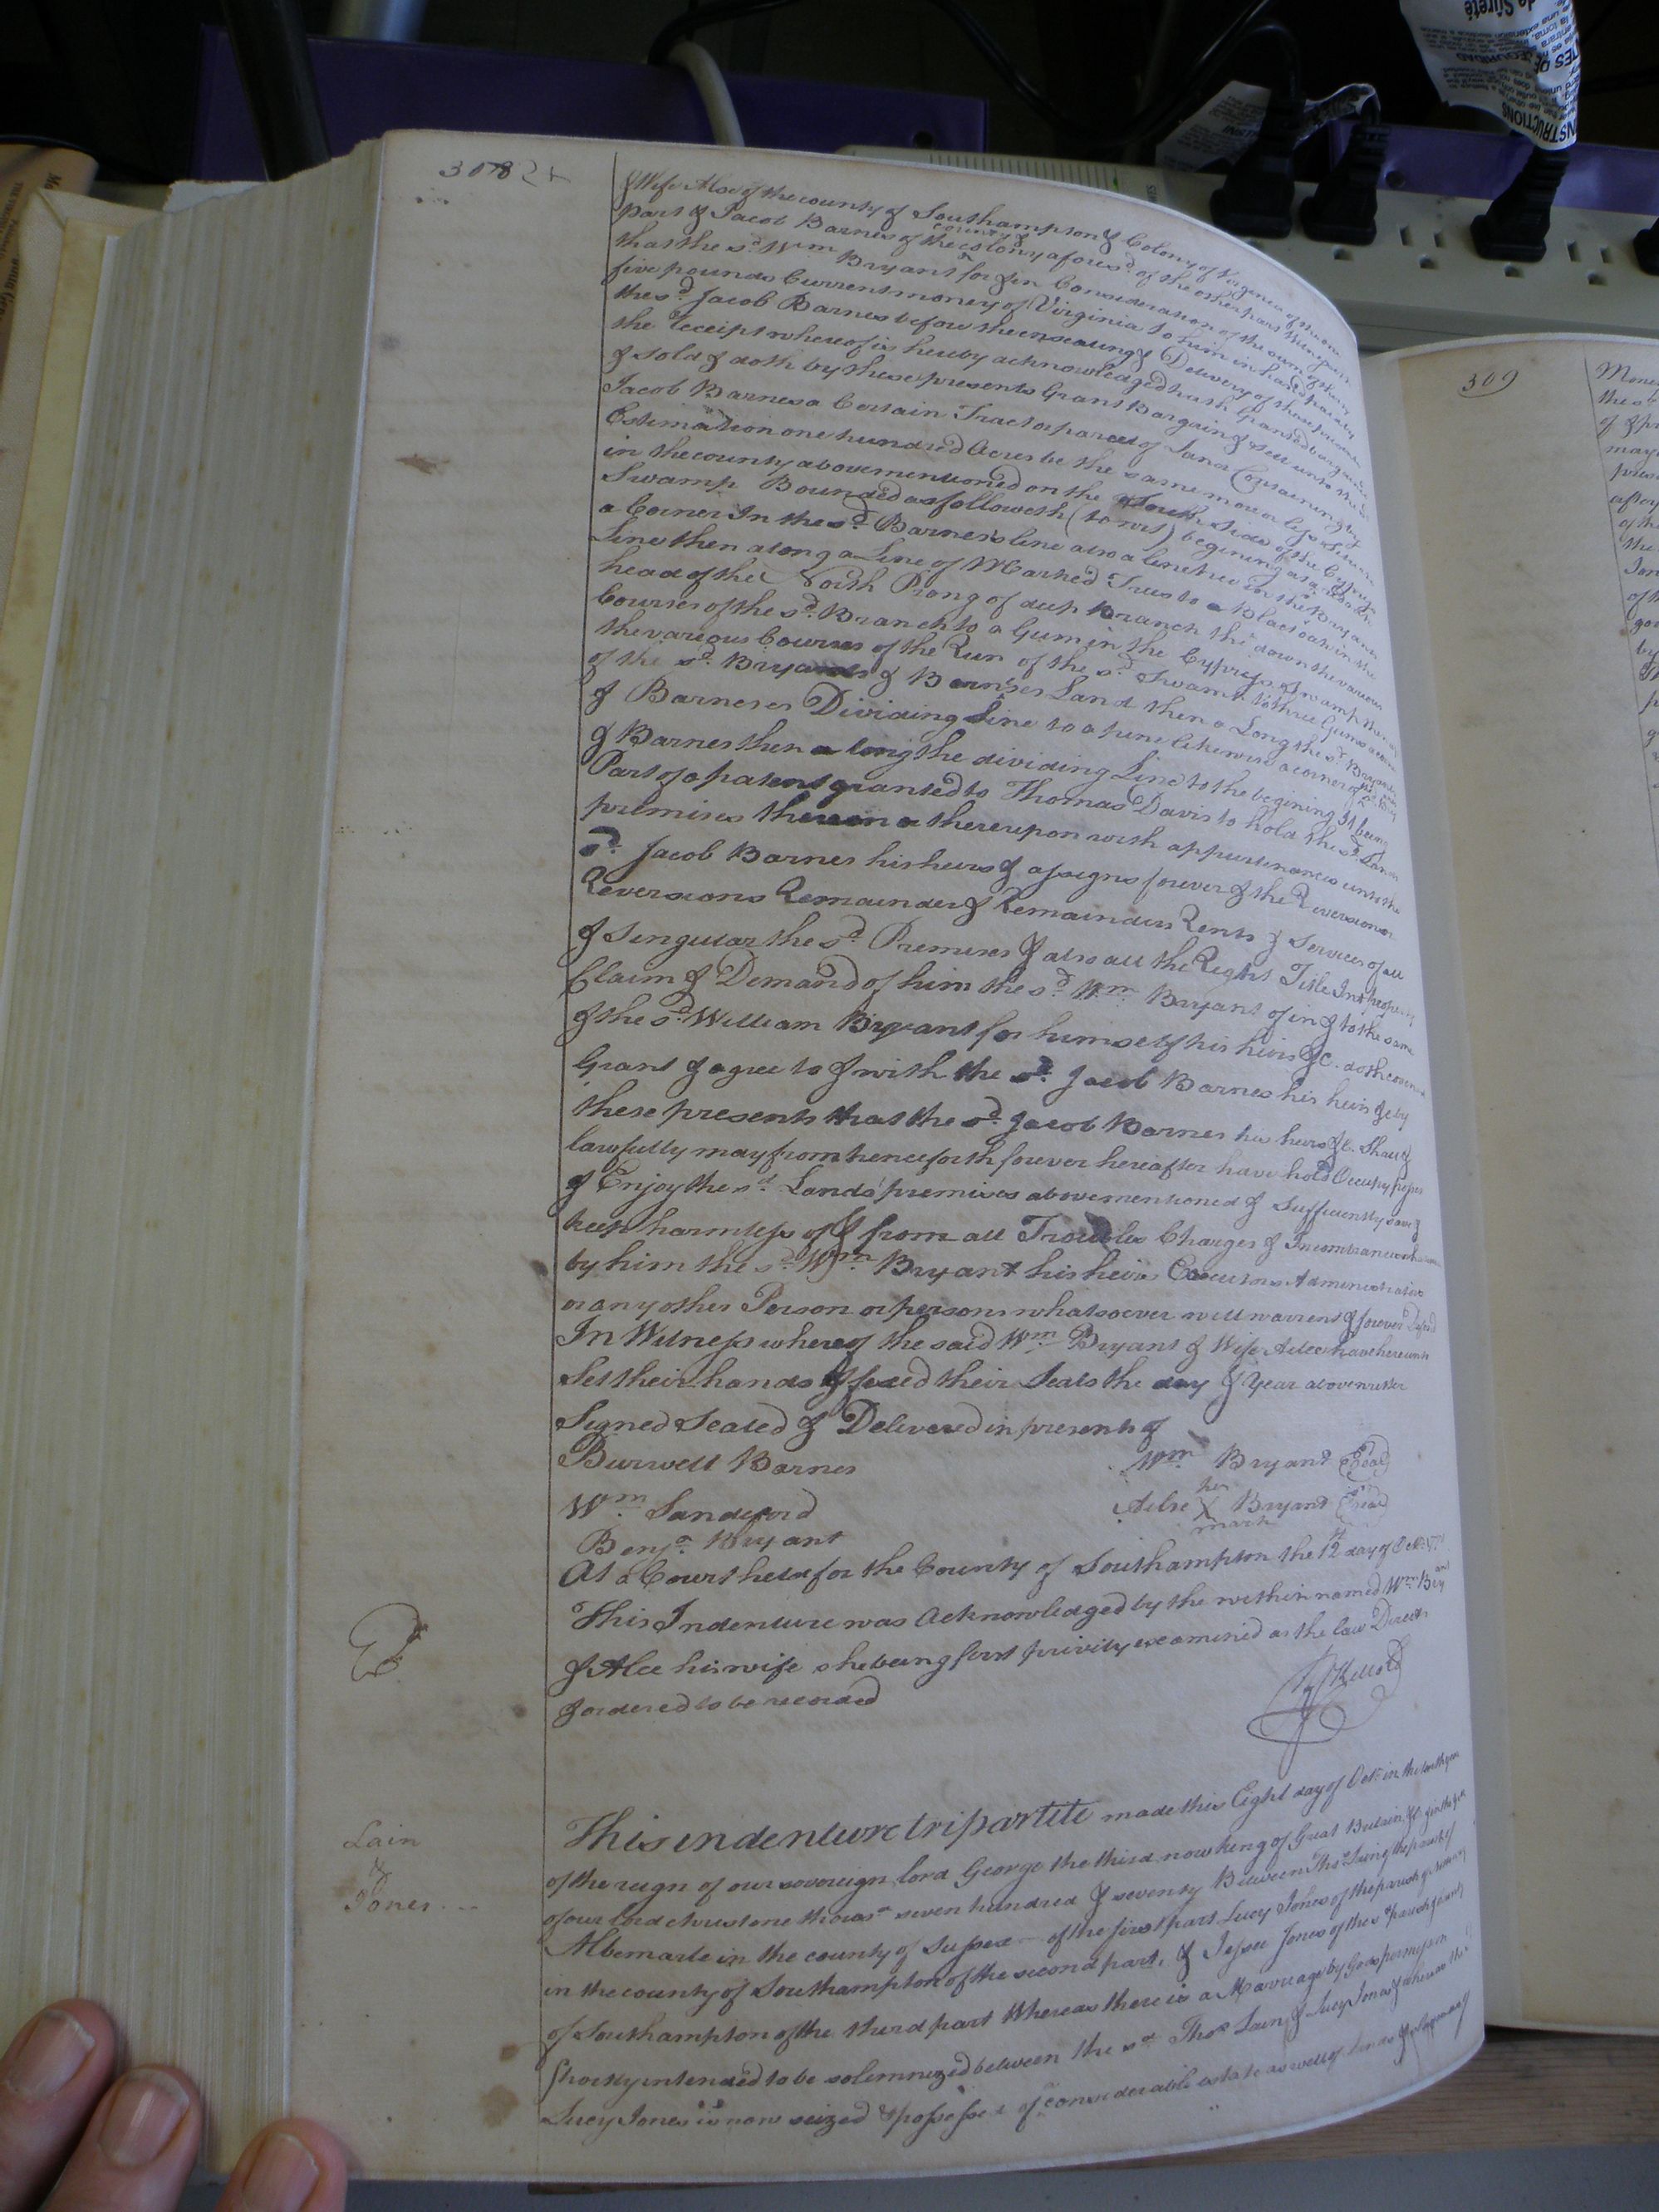 308
& Wife Alse of the county of Southampton & Colony of Virginia of the one
part & Jacob Barnes of the county & colony afores^d. of the other part Witnesseth
that the s^d. W^m Bryant for & in Consideration of the sum of
five pounds Current money of Virginia to him in hand paid by
the s^d. Jacob Barnes before the ensealing & Delivery of these presents
the receipt whereof is hereby acknowledged hath Granted bargained
& sold & doth by these presents Grant Bargain & sell unto the s^d.
Jacob Barnes a Certain Tract or parcel of Land Containing by
Estimation one hundred Acres be the same more or less
in the county abovementioned on the South Side of the Cypress
Swamp Bounded as followeth (to wit) begining at a
a Corner In the s^d. Barnes's line also a line tree in the Bryant
Line then along a Line of Marked Trees to a Black oak in the
head of the North Prong of deep Branch the down the various
Courses of the s^d. Branch to a Gum in the Cypress Swamp then
the various Courses of the Run of the s^d. Swamp to three Gums a corner
of the s^d. Bryants & Barnses Land then a Long the s^d. Bryants
& Barneses Dividing Line to a pine likewise a corner of
& Barnes then a long the dividing Line to the begining It being
Part of a patent granted to Thomas Davis to hold the s^d. Land
premises thereon a thereupon with appurtenances unto the
s^d. Jacob Barnes his heirs & assigns forever & the Reversion
Reversions Remainder & Remainders Rents & Services of all
& Singular the s^d. Premises & also all the Right Title Int^t property
Claim & Demand of him the s^d. W^m. Bryant of in & to the same
& the s^d. William Bryant for himself his heirs &c. doth covenant
Grant & agree to & with the s^d. Jacob Barnes his heirs &c by
these presents that the s^d. Jacob Barnes his heirs &c. Shall &
lawfully may from henceforth forever hereafter have hold Occupy posses
& Enjoy the s^d. Lands premises abovementioned & Sufficiently save &
keep harmless of & from all Troubles Charges & Incombrances
by him the s^d. W^m. Bryant his heirs Executors Administrators
or any other Person or persons whatsoever will warrent & forever Defend
In Witness whereof the said W^m. Bryant & Wife Aelse have hereunto
Set their hands & fixed their Seals the day & Year abovewritten
Signed Sealed & Delivered in presents of
Burwell Barnes W^m. Bryant Seal
W^m Sandeford Aelse her X mark Bryant Seal
Benj^a. Bryant
At a Court held for the County of Southampton the 12^th day of Oct^r.
This Indenture was Acknowledged by the within named W^m. Bryant
& Alce his wife she being first privily examined as the law Directs
& ordered to be recorded
Lain
&
Jones
This indenture tripartite made this Eight day of Oct^r. in the tenth year
of the reign of our sovereign lord George the third now king of Great Britain &c & in the year
of our lord christ one thous^d seven hundred & seventy Between Tho^s Lain of the parish of
Albemarle in the county of Sussex of the first part Lucy Jones of the parish of
in the county of Southampton of the second part, & Jesse Jones of the s^d parish & county
of Southampton of the third part Whereas there is a Marriage by Gods permission
shortly intended to be solemnized between the s^d Tho^s Lain & Lucy Jones & whereas the
Lucy Jones is now seized & possessed of considerable estate as well of lands &
309